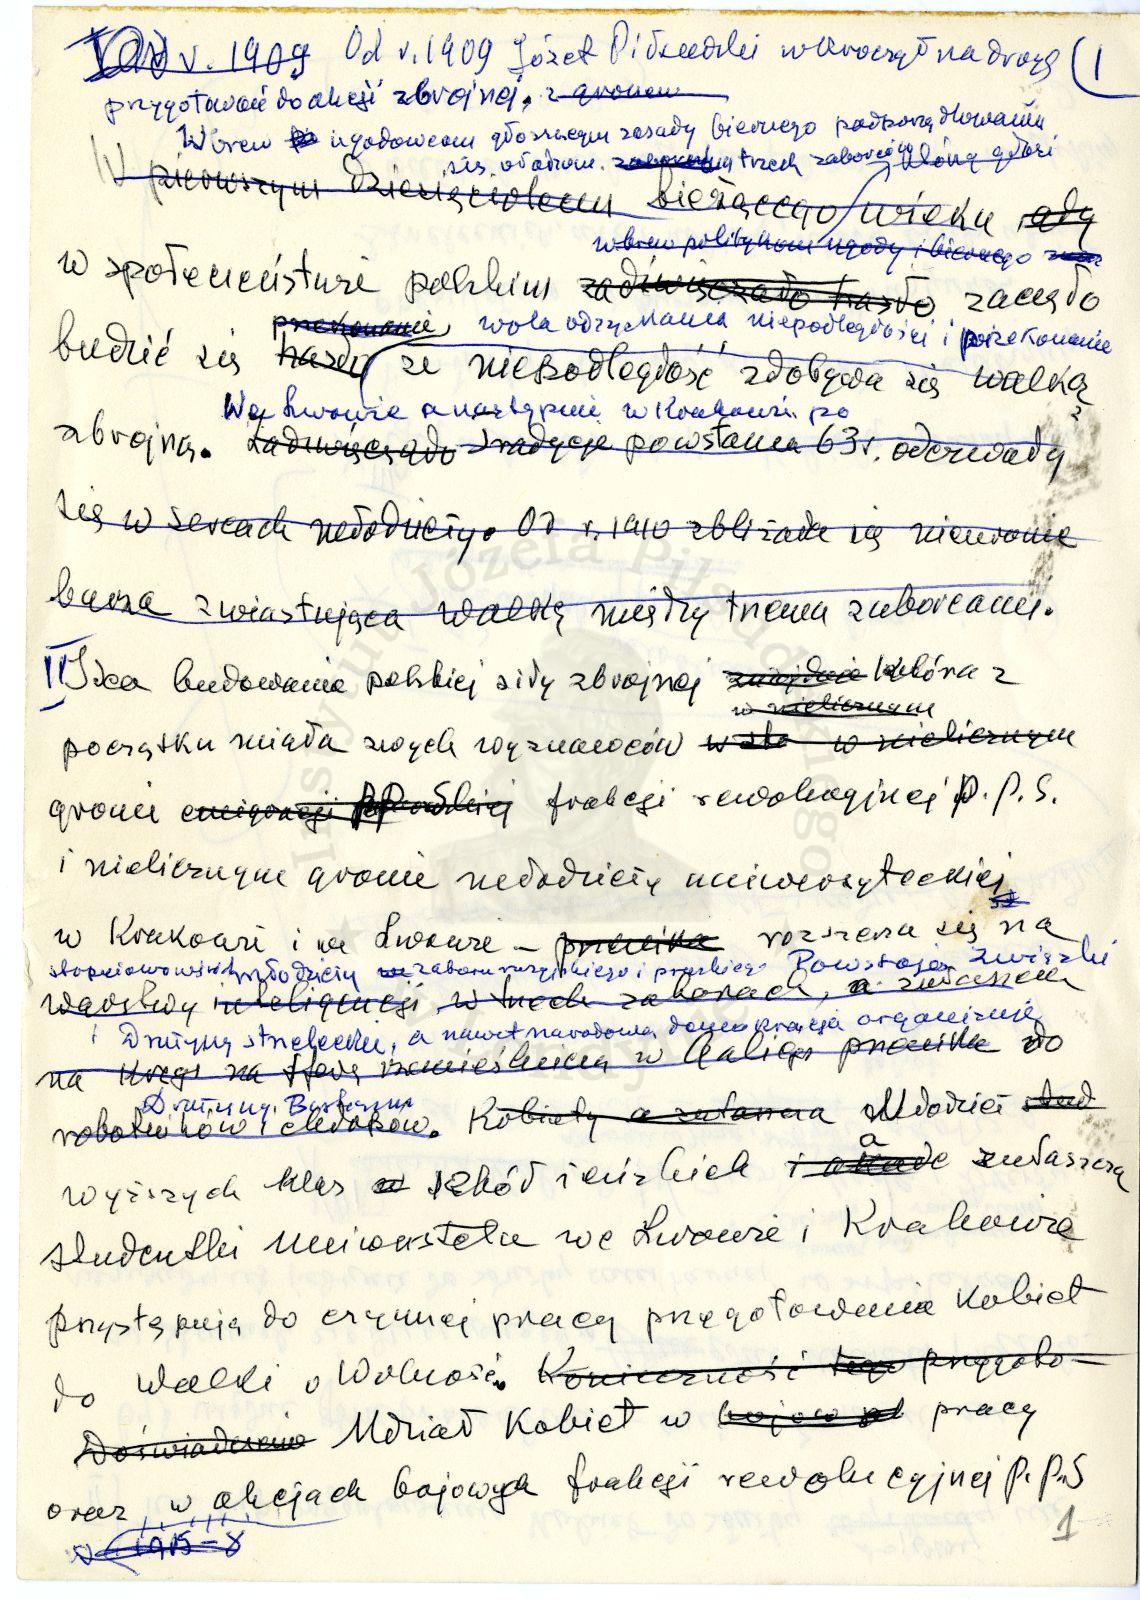 Od r. 1909 Od r. 1909 Józef Piłsudski wkroczył na drogę (1
przygotowań do akcji zbrojnej, z gronem
Wbrew ugodowcom głoszącym zasady biernego podporządkowania
się władzom trzech zaborców
W pierwszym dziesięcioleciu bieżącego wieku, gdy
wbrew politykom ugody i biernego
w społeczeństwie polskim zadźwięczało hasło zaczęło
przekonanie, wola odzyskania niepodległości i przekonanie
budzić się hasło że niepodległość zdobywa się walką
We Lwowie a następnie w Krakowie po
zbrojną. Zadźwięczało tradycje powstania 63 r. odezwały
się w sercach młodzieży. Od r. 1910 zbliżała się nieuchronnie
burza zwiastująca walkę między trzema zaborcami.
II Idea budowania polskiej siły zbrojnej znajduje która z
w nielicznym
początku miała swych wyznawców w nielicznym
gronie emigracji frakcji rewolucyjnej P.P.S.
i nielicznym gronie młodzieży uniwersyteckiej
w Krakowie i we Lwowie – przenika rozszerza się na
stopniowo wśród młodzieży zaboru rosyjskiego i pruskiego Powstają Związki
warstwy inteligencji w trzech zaborach, a zwłaszcza
i Drużyny strzeleckie, a nawet narodowa demokracja organizuje
na rzemieślniczą w Galicji przenika do
Drużyny Bartoszowe
robotników i chłopów. Kobiety a zwłaszcza Młodzież stud
a
wyższych klas szkół żeńskich i zwłaszcza
studentki uniwersytetu we Lwowie i Krakowie
przystępują do czynnej pracy przygotowania kobiet
do walki o Wolność. Konieczność tego przygoto–
Doświadczenie Udział Kobiet w pracy
oraz w akcjach bojowych frakcji rewolucyjnej P.P.S
1905–8
1
Instytut Józefa Piłsudskiego